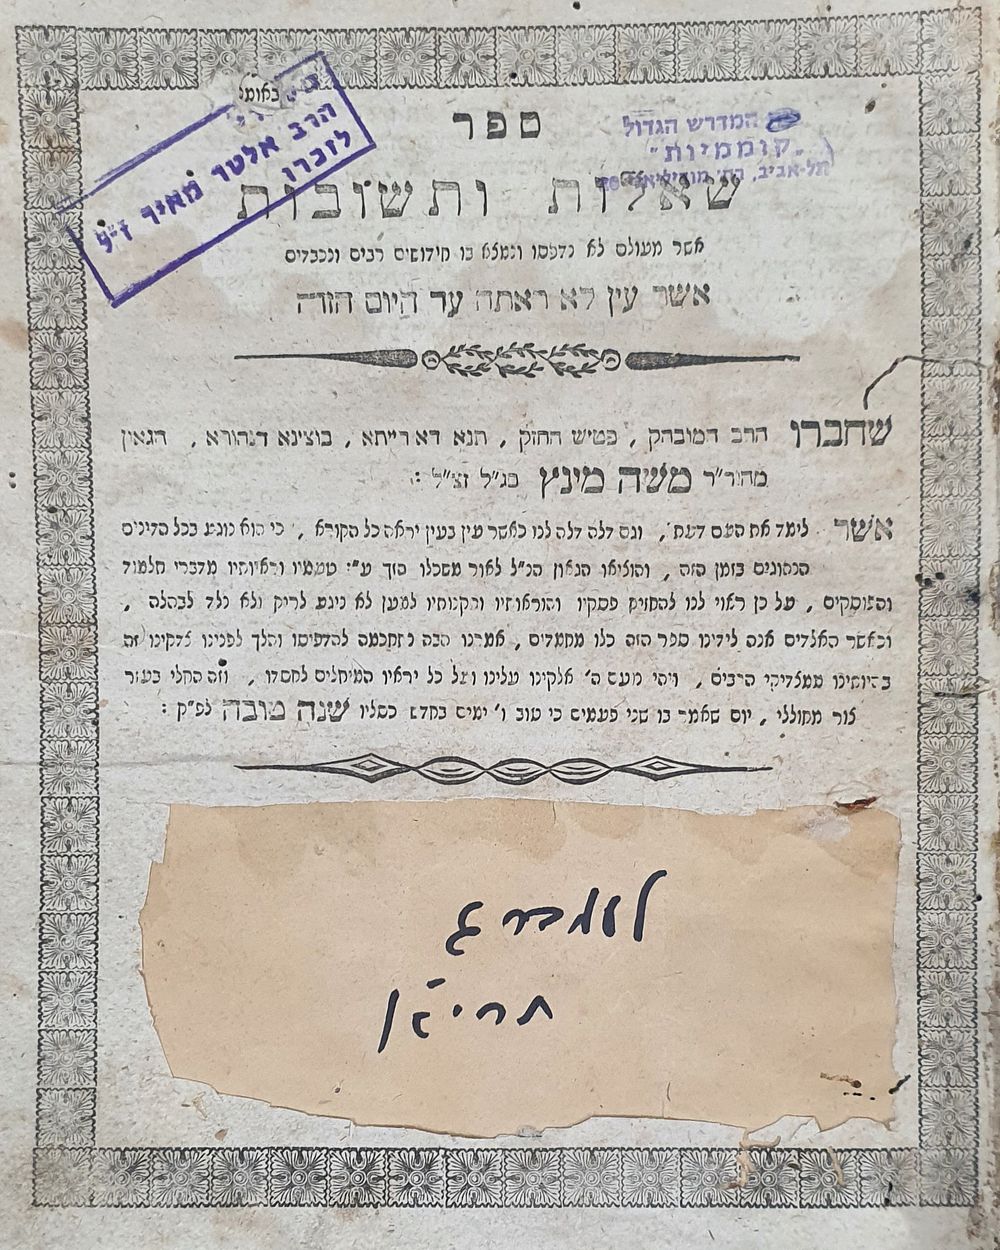 באומל
הרב אלטר מאיר ז"ל
לזכרו
המדרש הגדול
"קוממיות"
תל-אביב, רח'
ספר
שאלות ותשובות
אשר מעולם לא נדפסו ונמצא בו חידושים רבים ונכבדים
אשר עין לא ראתה עד היום הזה
שחברו הרב המובהק, פטיש החזק, תנא דאורייתא, בוצינא דנהורא, הגאון
מהור"ר משה מינץ בג"ל זצ"ל :
אשר לימד את העם דעת, וגם דלה דלה לנו כאשר עין בעין יראה כל הקורא, כי הוא נוגע בכל הדינים
הנהוגים בזמן הזה, והוציאו הגאון הנ"ל לאור משכלו הזך ע"פ טעמיו וראיותיו מדברי תלמוד
והפוסקים, על כן ראוי לנו להחזיק פסקיו והוראותיו ותקנותיו למען לא ניגע לריק ולא נלד לבהלה,
וכאשר האלדים אנה לידינו ספר הזה כלו מחמדים, אמרנו הבה נתחכמה להדפיסו והלך לפנינו צדקינו זה
בהיותינו ממצדיקי הרבים, ויהי נועם ה' אלקינו עלינו ועל כל יראיו המיחלים לחסדו, וזה החלי בעזר
צור מחוללי, יום שאמר בו שני פעמים כי טוב ו' ימים בחדש כסליו שנה טובה לפ"ק :
לעמבערג
תרי"א